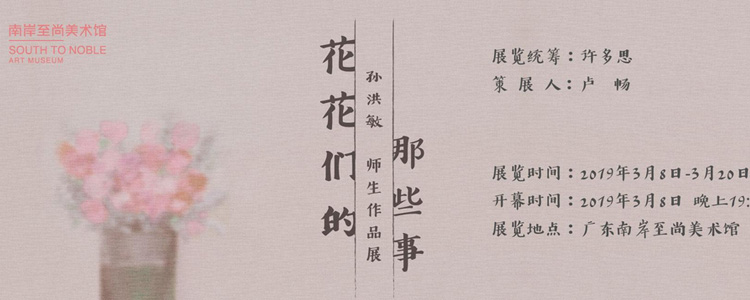 南岸至尚美术馆
SOUTH TO NOBLE
ART MUSEUM
花花们的
孙洪敏 师生作品展
那些事
展览统筹：许多思
策 展 人：卢 畅
展览时间：2019年3月8日-3月20日
开幕时间：2019年3月8日 晚上19:
展览地点：广东南岸至尚美术馆